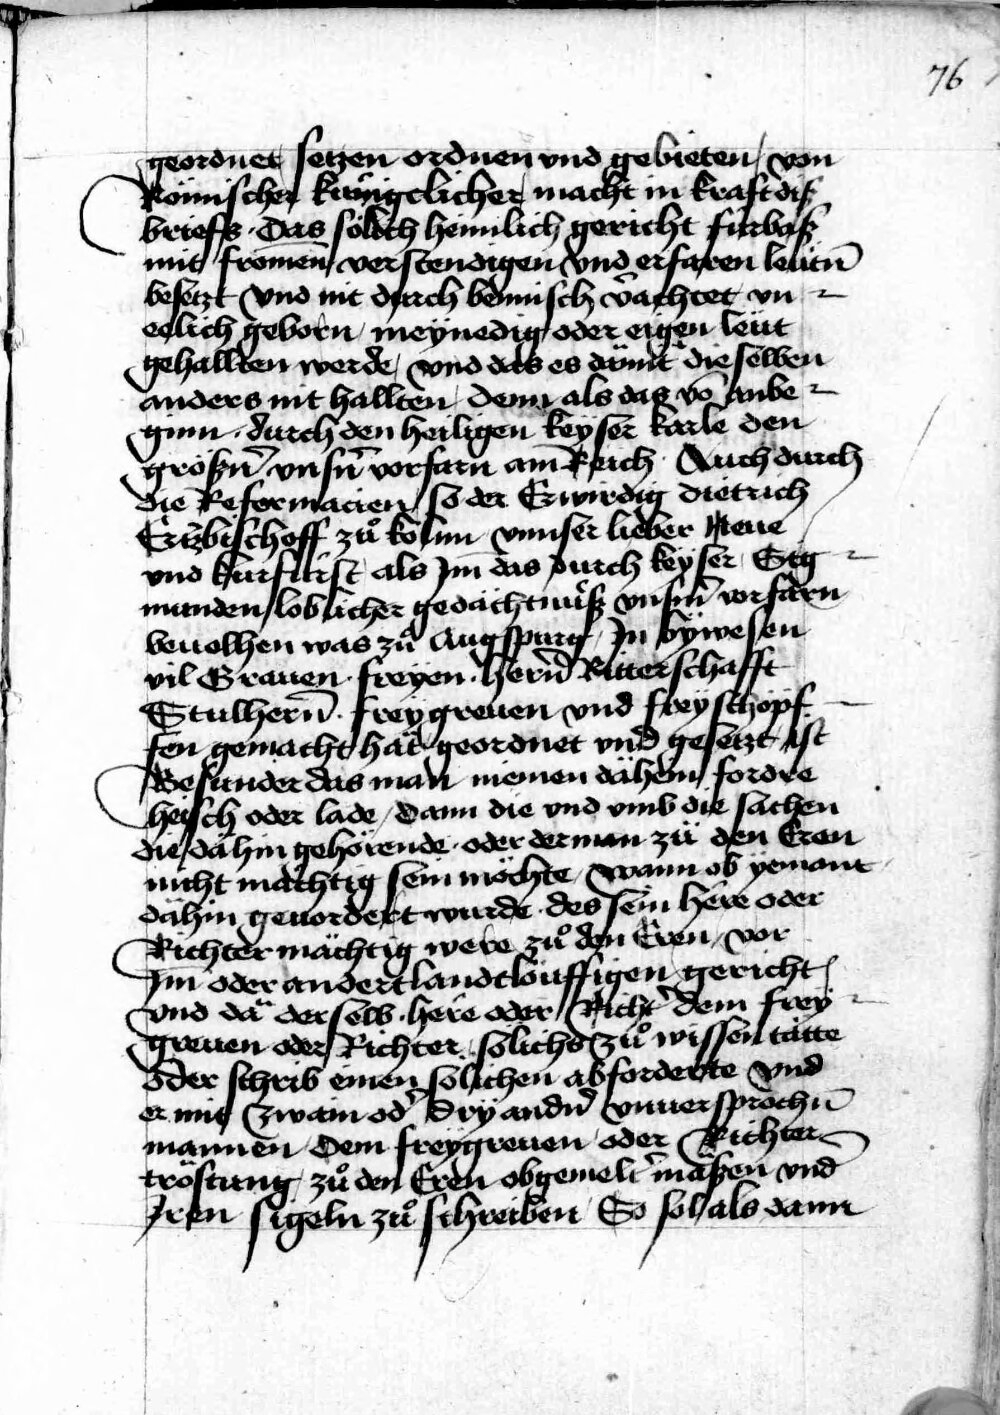 76
geordnet setzen ordnen vnd gebieten von
Römischer küniglicher macht in kraft diß
briefs. Das sölich heimlich gericht fürbaß
mit fromen verstendigen vnd erfaren leütn̄
besetzt vnd nit durch bennisch v̄achtet vn
eelich geborn meÿnedig oder eigen leüt
gehallten werde, vnd das es dämit dieselben
anders nit hallten, denn als das vō anbe
ginn. durch den heiligen keÿser karle den
großn̄ vnsn̄ vorfarn am Reich. Auch durch
die Reformacien so der Erwirdig dietrich
Ertzbischoff zů kolnn vnnser lieber Neue
vnd kurfürst als Im das durch keÿser Sig
munden loblicher gedächtnüß vnsm̄ vorfarn
beuolhen was zů Augspurg, In bÿwesen
vil Grauen. freÿen. hern̄ Ritterschafft
Stulhern̄. freygreuen vnd freÿschöpf
fen gemacht hät geordnet vnd gesetzt ist
Besunder das man niemen dähem fordre
heisch oder lade, Dann die vnd vmb die sachen
die dähin gehörende. oder der man zů den Eren
nicht mächtig sein möchte, wann ob ÿemant
dähin geuordert wurde. des sein here oder
Richter mächtig were zů den Eren, vor
Im oder andert landtlöuffigen gericht
vnd dä derselb. here oder Richt̄ dem freÿ
greuen oder Richter. sölichs zů wissen tätte
oder schrib einen solichen abforderte vnd
er mit zwain od̄ Drÿ andn̄ vnuersprochn̄
mannen Dem freÿgreuen oder Richter
tröstung zů den Eren obgemelt̄ mäßen vnd
Iren sigeln zů schreiben So sol als dann